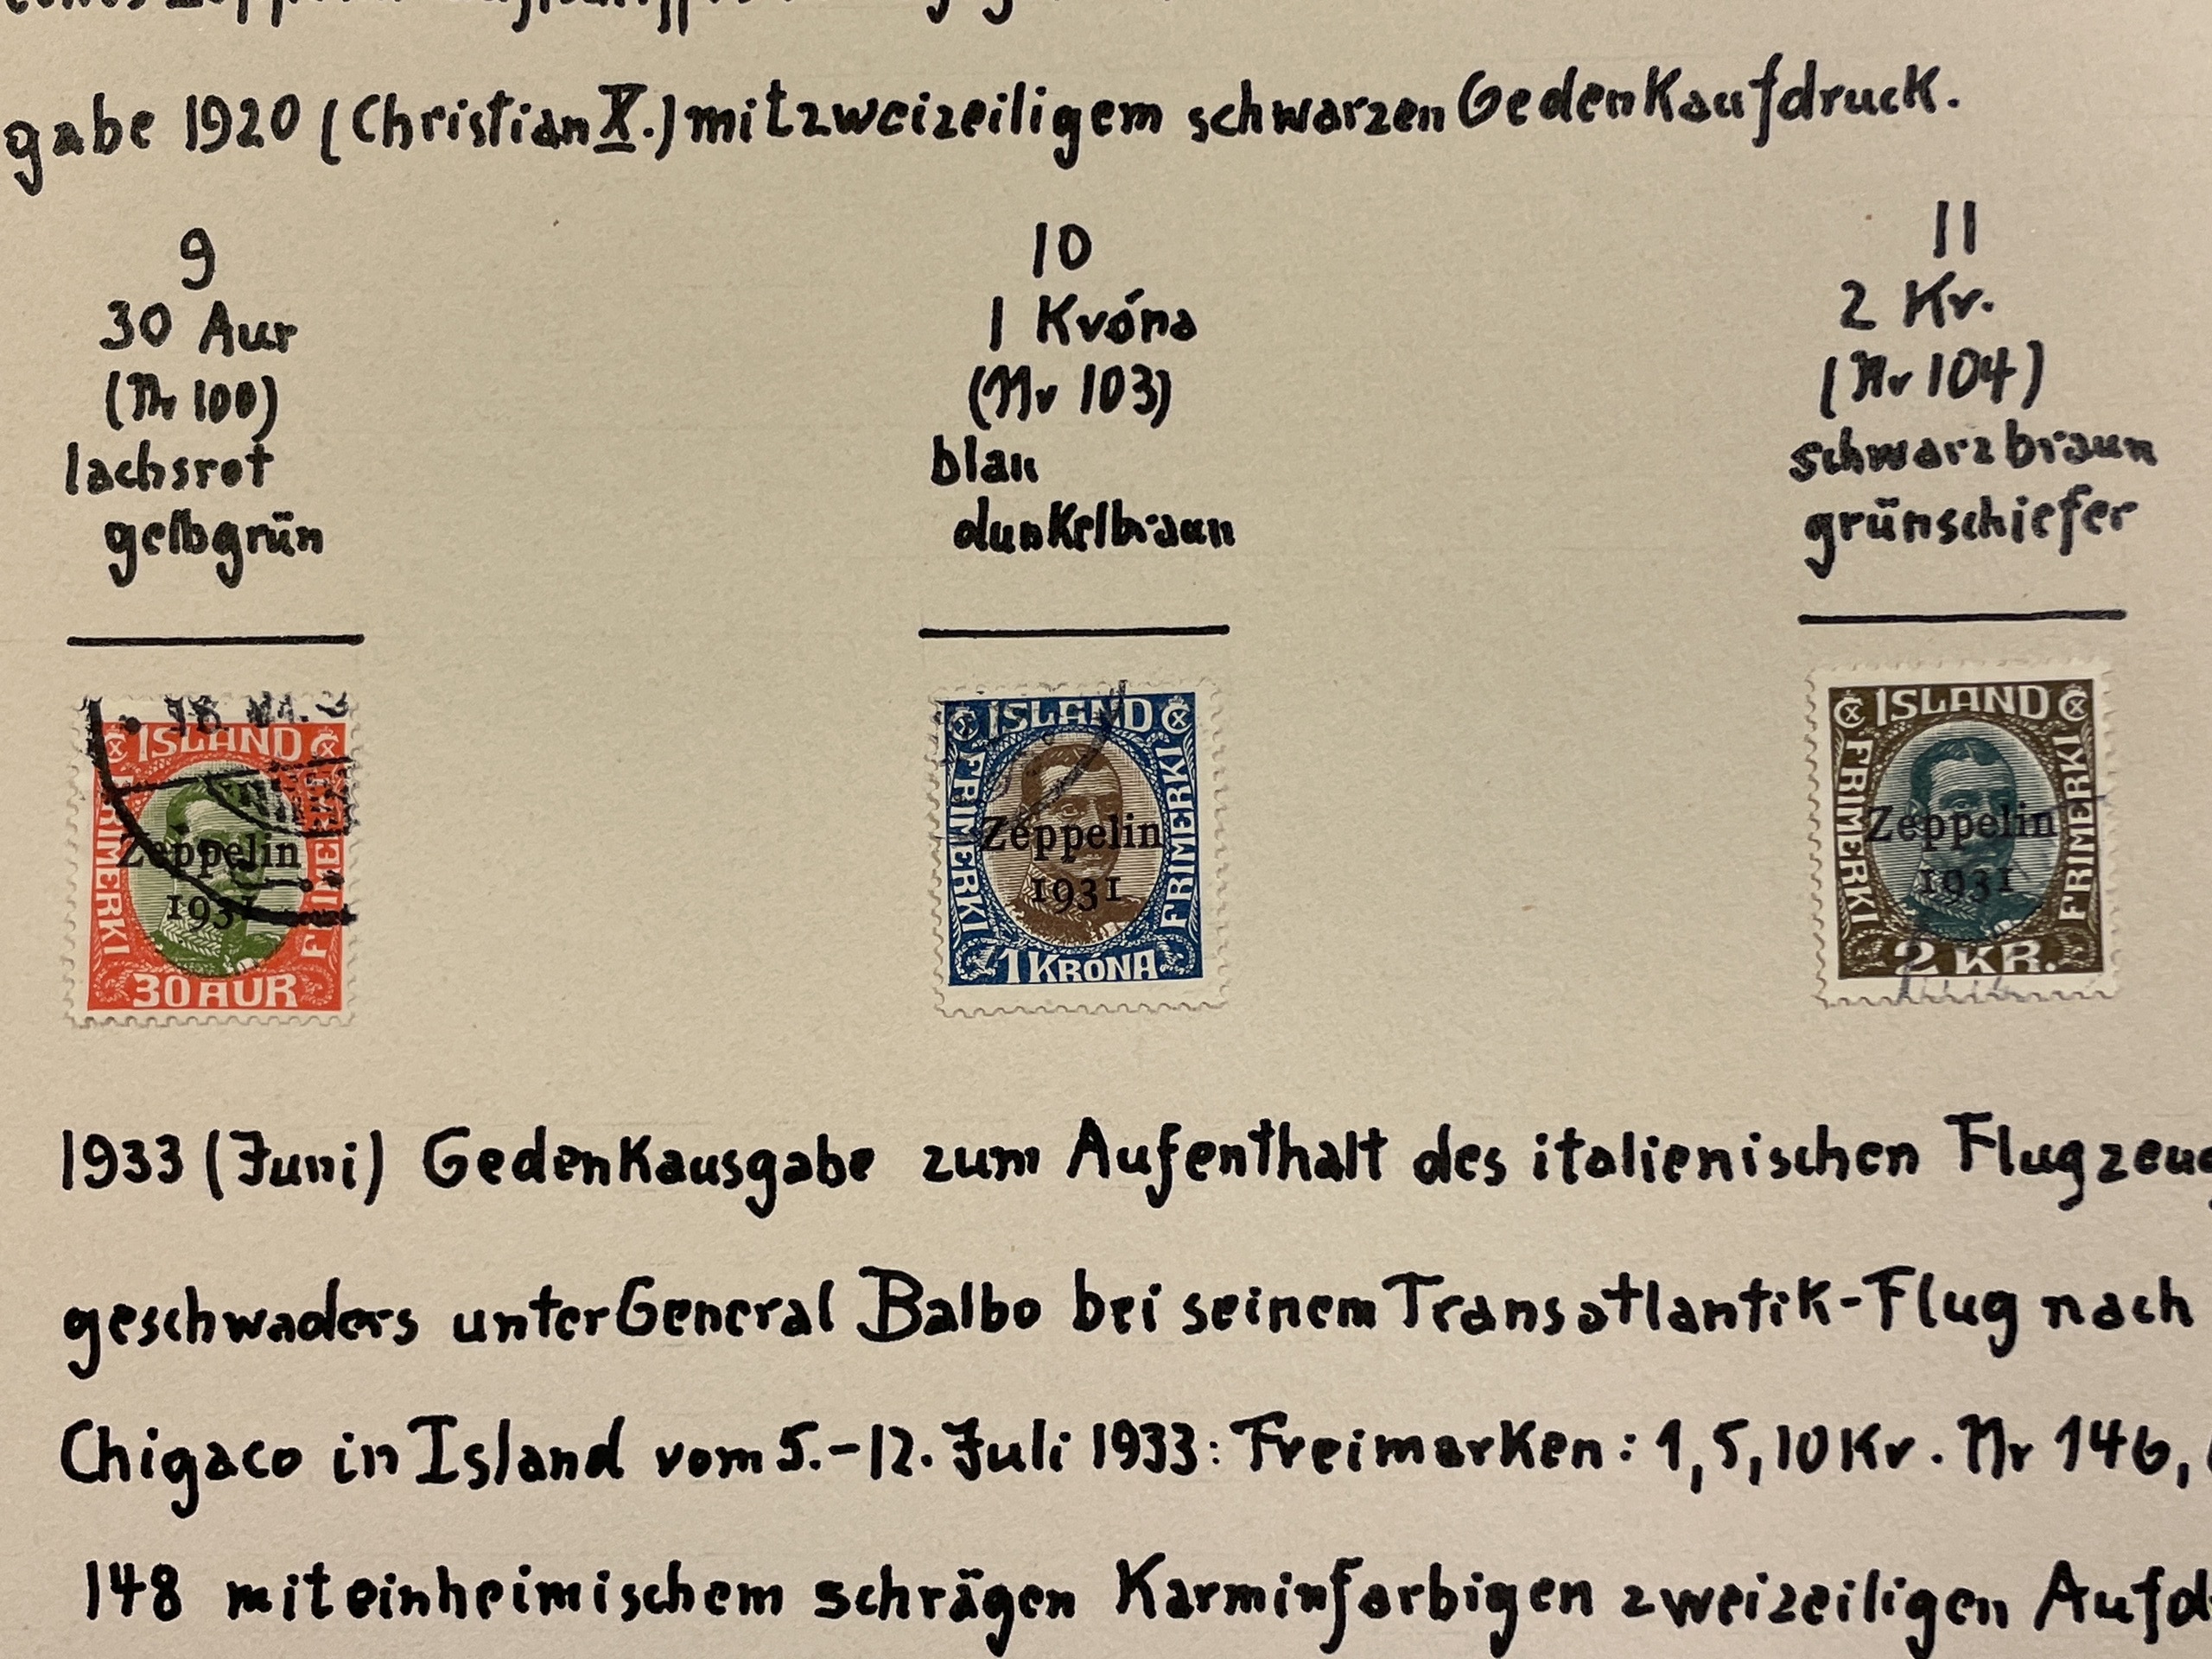 gabe 1920 (Christian X.) mit zweizeiligem schwarzen Gedenkaufdruck.
9
30 Aur
(Nr 100)
lachsrot
gelbgrün
10
1 Króna
(Nr 103)
blau
dunkelbraun
11
2 Kr.
(Nr 104)
schwarzbraun
grünschiefer
18 VI. 3
ISLAND
FRIMERKI
FRIMERKI
Zeppelin
1931
30 AUR
ISLAND
FRIMERKI
FRIMERKI
Zeppelin
1931
1 KRÓNA
ISLAND
FRIMERKI
FRIMERKI
Zeppelin
1931
2 KR.
1933 (Juni) Gedenkausgabe zum Aufenthalt des italienischen Flugzeug
geschwaders unter General Balbo bei seinem Transatlantik-Flug nach
Chigaco in Island vom 5.-12. Juli 1933: Freimarken: 1, 5, 10 Kr. Nr 146,
148 mit einheimischem schrägen Karminfarbigen zweizeiligen Aufd